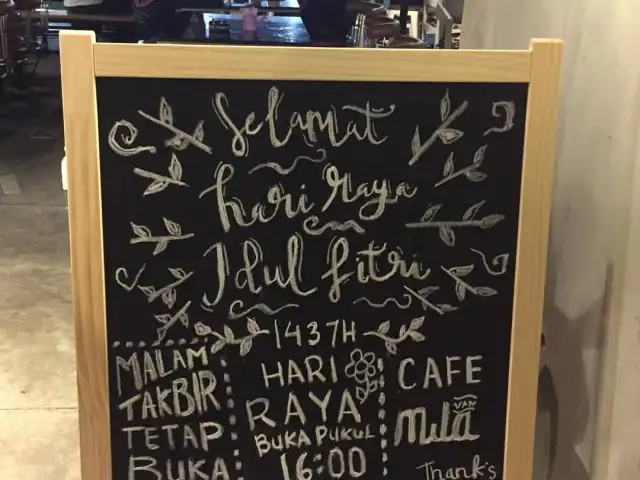 Selamat
hari Raya
Idul fitri
1437H
MALAM
TAKBIR
TETAP
BUKA
HARI
RAYA
BUKA PUKUL
16:00
CAFE
VAN
Mila
Thank's